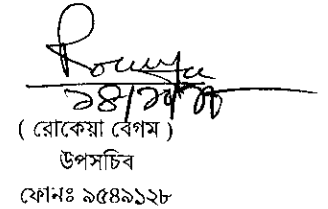 ( রোকেয়া বেগম )
উপসচিব
ফোনঃ ৯৫৪৯১২৮